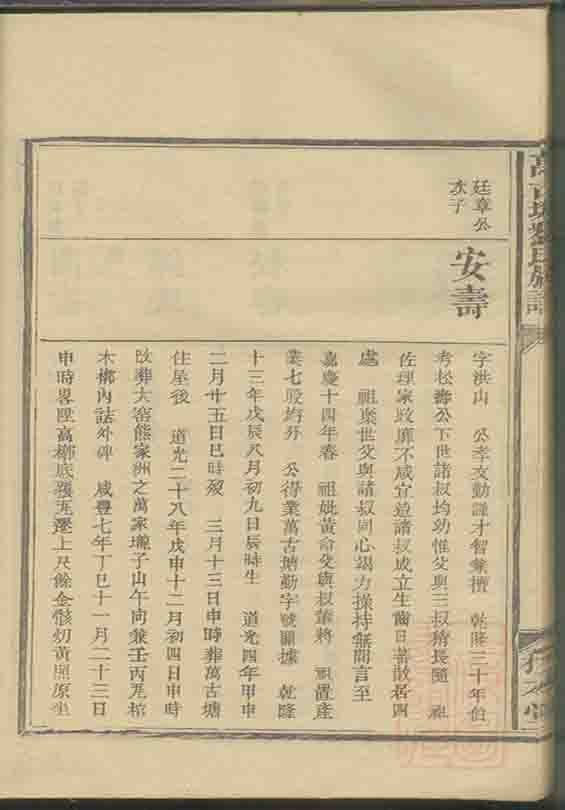 萬古塘劉氏族譜
廷章公
次子
安壽
字洪山 公孝友勤謹才智兼擅 乾隆三十年伯
考松壽公下世諸叔均幼惟父與三叔稍長隨 祖
佐理家政靡不咸宜迨諸叔成立生齒日蕃散居四
處 祖業世父與諸叔同心竭力操持無間言至
嘉慶十四年春 祖妣黃命父與叔輩將 祖置產
業七股均分 公得業萬古塘勤字號圖據 乾隆
十三年戊辰八月初九日辰時生 道光四年甲申
二月廿五日巳時歿 三月十三日申時葬萬古塘
住屋後 道光二十八年戊申十二月初四日申時
改葬大窑熊家洲之萬家壠子山午向兼壬丙瓦棺
木槨內誌外碑 咸豐七年丁巳十一月二十三日
申時畧陞高槨底獲瓦墊上尺餘金骸如黃照原坐